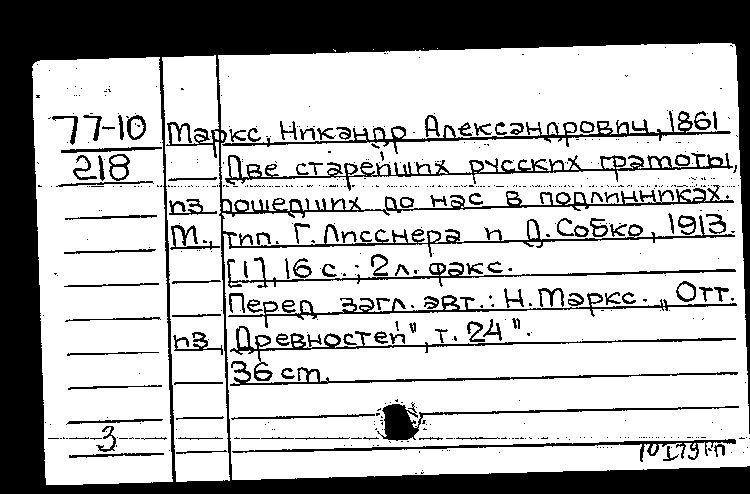 77-10 Маркс, Никандр Александрович, 1861
218 Две старейших русских грамоты,
из дошедших до нас в подлинниках.
М., тип. Г. Лисснера и Д. Собко, 1913.
[1], 16 с.; 2 л. факс.
Перед загл. авт.: Н. Маркс. „Отт.
из „Древностей", т. 24".
36 cm.
3